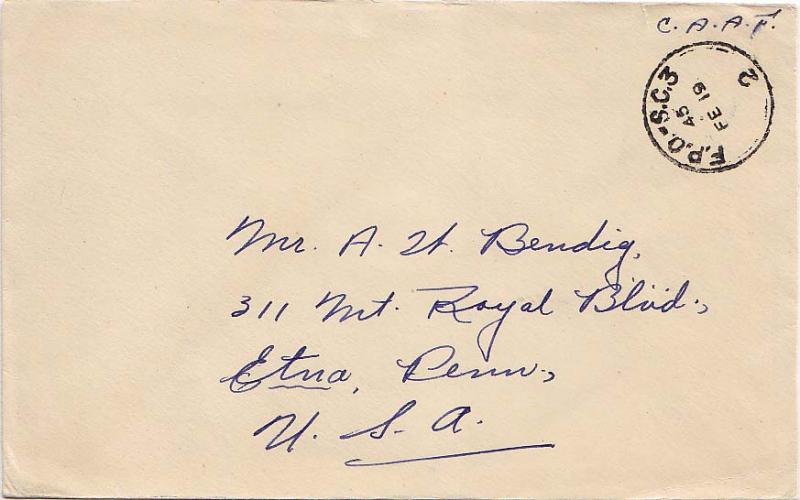 C.A.A.F.
F.P.O.-S.C.3
2
FE 19
45
Mr. A. H. Bendig,
311 Mt. Royal Blvd.,
Etna, Penn.,
U. S. A.